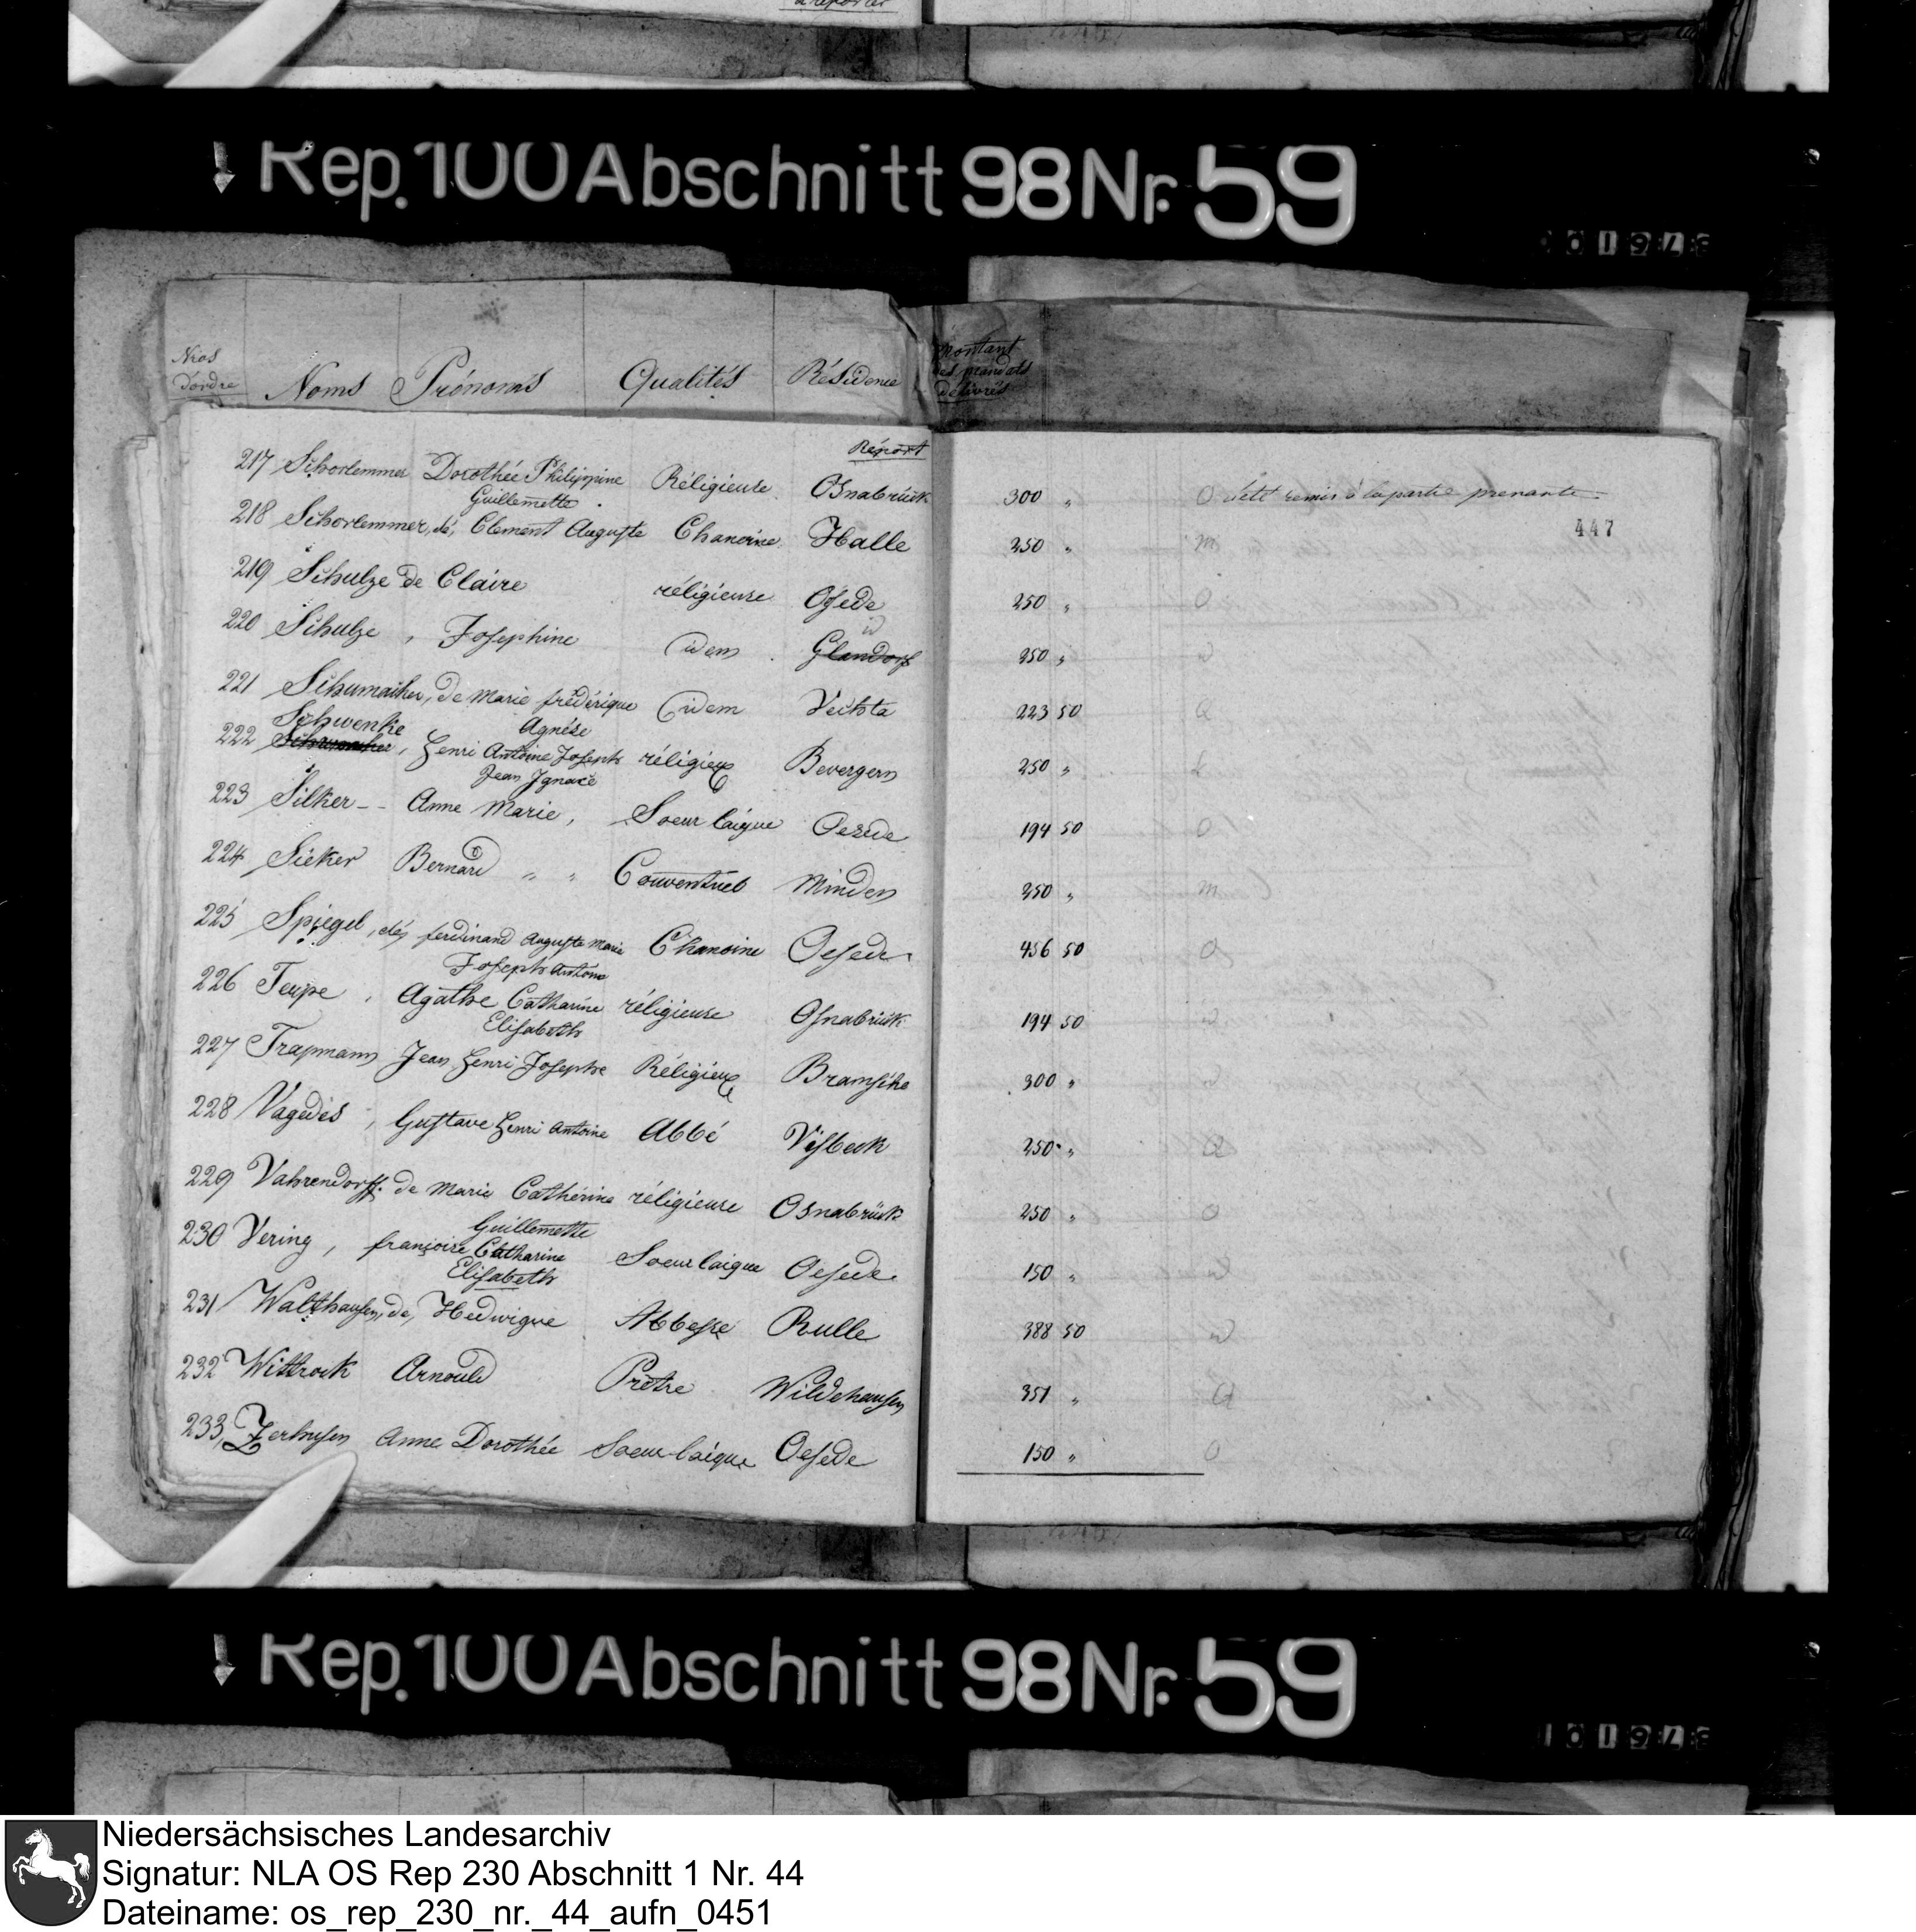 à reporter
Rep. 100 Abschnitt 98 Nr. 59
Nros d'ordre Noms Prénoms Qualités Résidence Montant des mandats délivrés
Réport
217 Schorlemmer Dorothée Philippine Réligieuse Osnabrück 300 " O a été remis à la partie prenante
Guillemette
447
218 Schorlemmer, de, Clement Auguste Chanoine Halle 250 " m
219 Schulze de Claire réligieuse Oesede 250 " O
id
220 Schulze, Josephine idem Glandorf 250 "
221 Schumacher, de Marie frédérique idem Vechta 223 50 Q
Schwenke Agnése
222 Schumacher, Henri Antoine Joseph réligieux Bevergern 250 "
Jean Ignace
223 Silker -- Anne Marie, Soeur laique Oesede 194 50 O
224 Sieker Bernard " " Conventuel Minden 250 " m
225 Spiegel, de, ferdinand Auguste Marie Chanoine Oesede 456 50 O
Joseph Antone
226 Teupe, Agathe Catharine réligieuse Osnabrück 194 50
Elisabeth
227 Trapmann Jean Henri Josephe Réligieux Bramsche 300 "
228 Vagedes, Gustave Henri Antoine Abbé Visbeck 250 " Q
229 Vahrendorff. de Marie Cathérine réligieuse Osnabrück 250 " O
Guillemette
230 Vering, françoise Catharine Soeur laique Oesede 150 "
Elisabeth
231 Walthausen, de, Hedwigue Abbesse Rulle 388 50
232 Wittrock Arnould Prêtre Wildehausen 351 " Q
233 Zerhusen Anne Dorothée Soeur-laique Oesede 150 " O
Rep. 100 Abschnitt 98 Nr. 59
Niedersächsisches Landesarchiv
Signatur: NLA OS Rep 230 Abschnitt 1 Nr. 44
Dateiname: os_rep_230_nr._44_aufn_0451